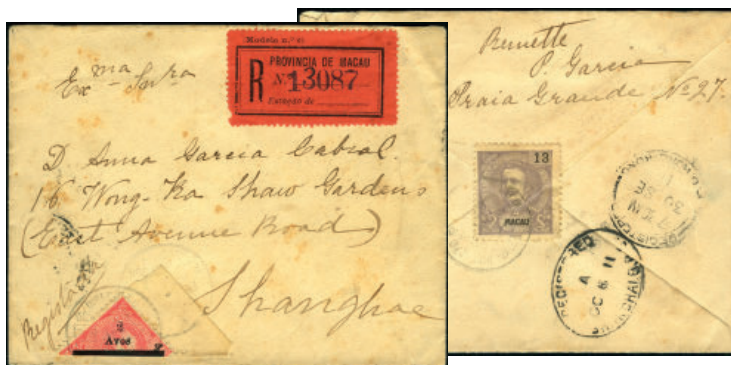 Modelo n.º
PROVINCIA DE MACAU
R N.º 13087
Estação de
Exma Snra
D. Anna Garcia Cabral.
16 Wong-Ka Shaw Gardens
(East Avenue Road)
Shanghae
Registada
2
Avos
Remette
P. Garcia
Praia Grande Nº 27.
13
MACAU
REGISTERED
30 SE
REGISTERED
A
OC 6 11
SHANGHAI